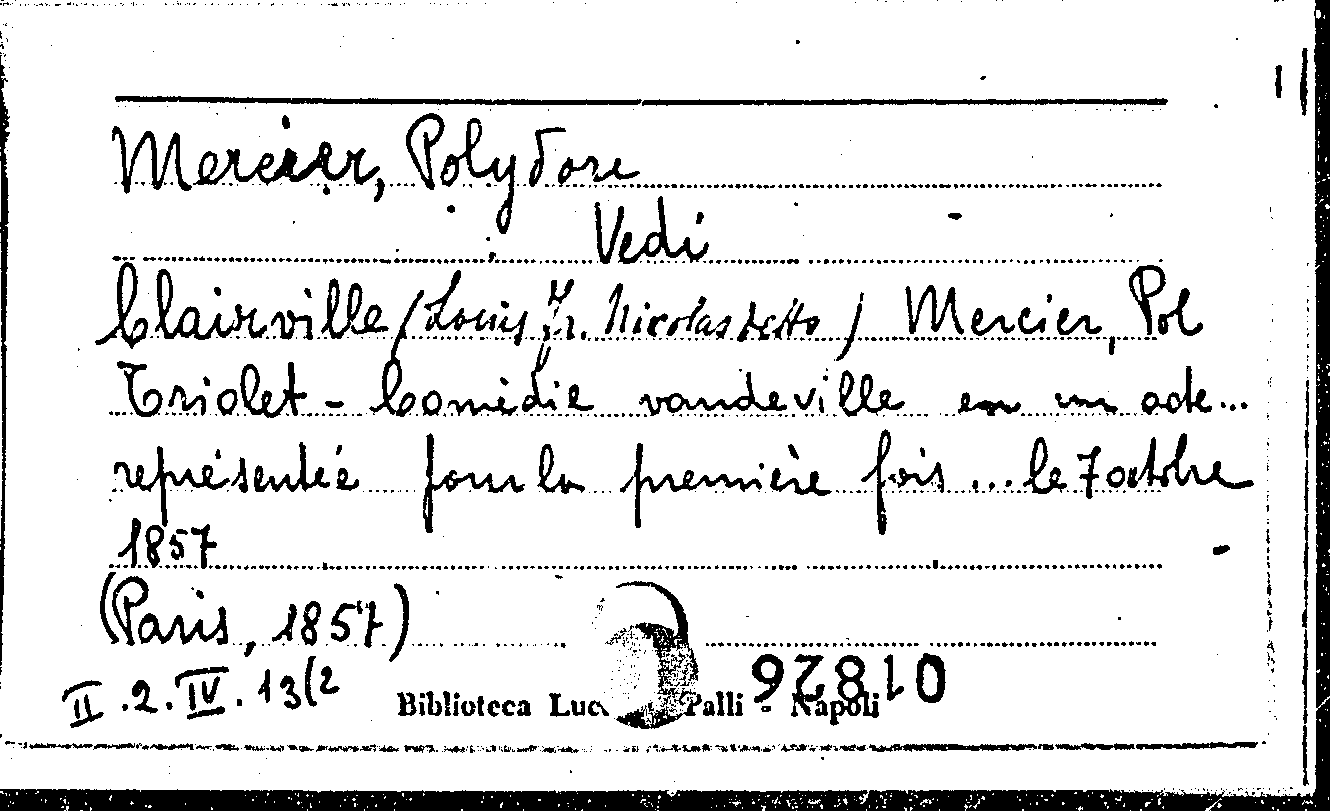 Mercier, Polydore
Vedi
Clairville (Louis Fr. Nicolas detto) Mercier, Pol
Triolet - Comèdie vaudeville en un acte...
représentée pour la première fois ... le 7 octobre
1857
(Paris, 1857)
II.2.IV.13(2
Biblioteca Palli - Napoli
01826